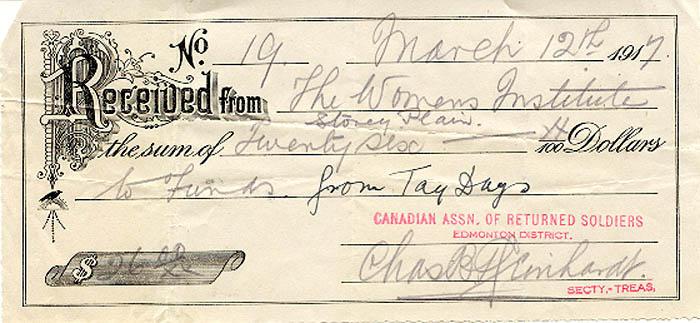 No. 19. March 12th 1917
Received from The Womens Institute
Stoney Plain.
the sum of Twenty six — XX/100 Dollars
to Funds from Tag Days
CANADIAN ASSN. OF RETURNED SOLDIERS
EDMONTON DISTRICT.
$ 26
Chas
SECTY.-TREAS.